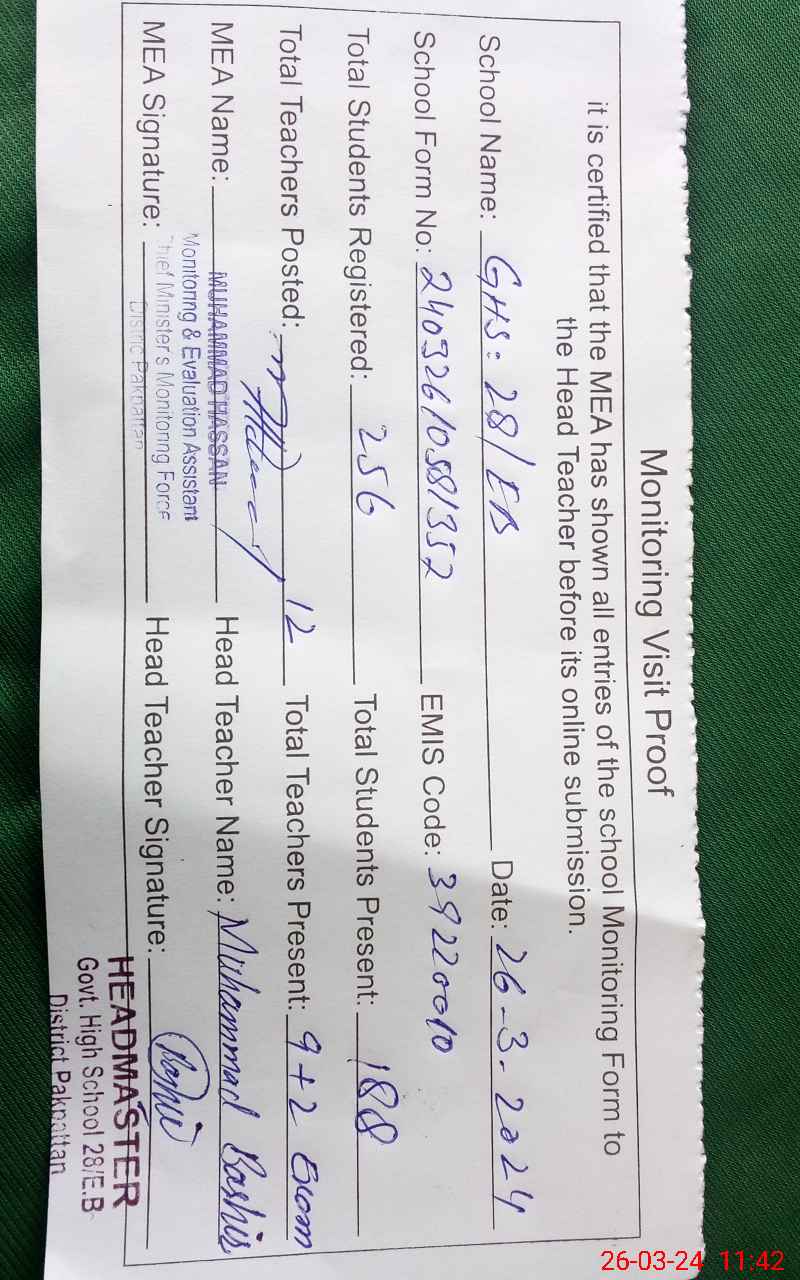 Monitoring Visit Proof
it is certified that the MEA has shown all entries of the school Monitoring Form to
the Head Teacher before its online submission.
School Name: GHS: 28/EB Date: 26-3-2024
School Form No: 24032610581352 EMIS Code: 39220010
Total Students Registered: 256 Total Students Present: 188
Total Teachers Posted: 12 Total Teachers Present: 9+2 Exam
MEA Name: MUHAMMAD HASSAN Head Teacher Name: Muhammad Bashir
Monitoring & Evaluation Assistant
Chief Minister's Monitoring Force
District Pakpattan
MEA Signature: Head Teacher Signature:
HEADMASTER
Govt. High School 28/E.B
District Pakpattan
26-03-24 11:42